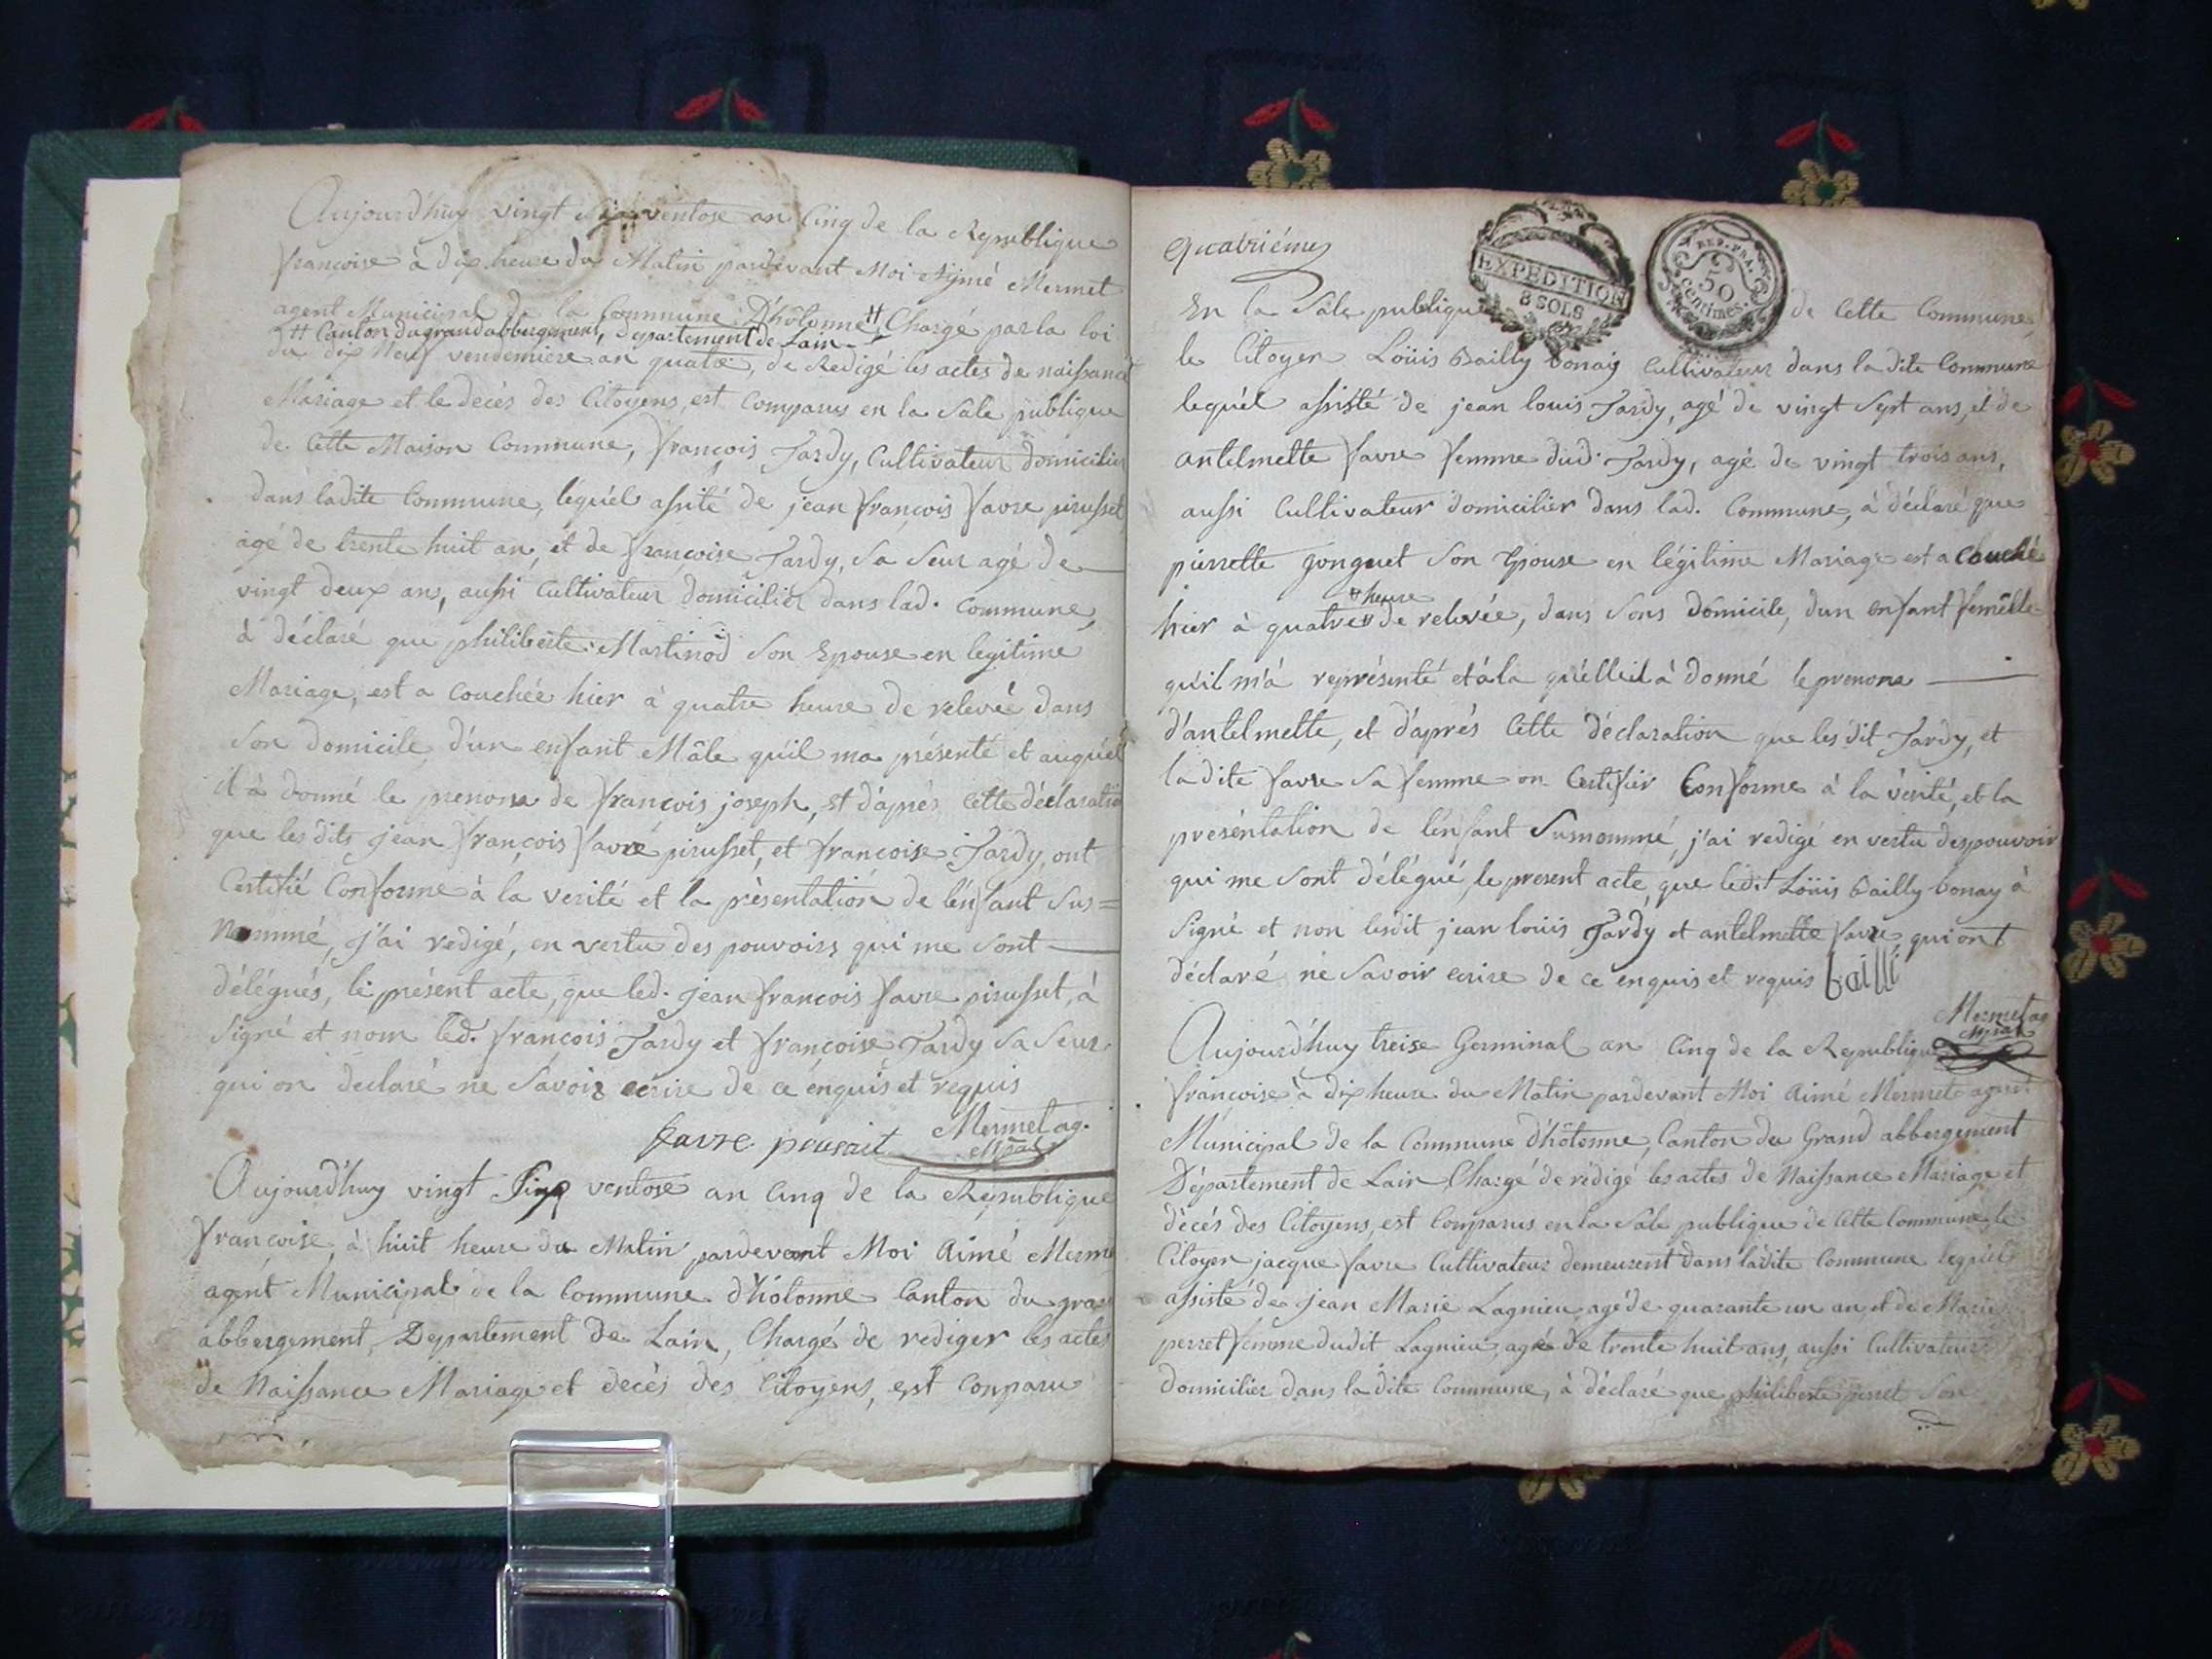 Aujourd'huy vingt ventose an Cinq de la Republique
françoise à dix heure du Matin pardevant Moi Aymé Mermet
agent Municipal de la Commune D'hotonne # Chargé par la loi
# Canton du grand abbergement, departement de Lain
du dix Neuf vendemiere an quatre, de Redigé les actes de naissance
Mariage et le decès des Citoyens, est Comparus en la Sale publique
de Cette Maison Commune, françois Tardy, Cultivateur domicilier
dans ladite Commune, lequel assité de jean françois favre pirusset
agé de trente huit an, et de françoise Tardy, Sa Seur agé de
vingt deux ans, aussi Cultivateur domicilier dans lad. Commune,
à déclaré que philiberte Martinod Son Epouse en legitime
Mariage, est a Couchée hier à quatre heure de relevé dans
Son domicile d'un enfant Mâle quil ma présenté et auquel
il à donné le prenom de françois joseph, et d'après Cette déclaratio
que les dits jean françois favre pirusset, et françoise Tardy, ont
Certifié Conforme à la verité et la prèsentation de lénfant Sus=
Nommé, j'ai redigé, en vertu des pouvoirs qui me Sont
délégués, le présent acte, que led. jean françois favre pirusset, à
Signé et nom led. françois Tardy et françoise Tardy Sa Seur
qui on declaré ne Savoir ecrire de ce énquis et requis
favre Mermet ag.
Mpal
Aujourd'huy vingt Sinq ventose an Cinq de la Republique
françoise, à huit heure du Matin pardevant Moi Aimé Merme
agent Municipal de la Commune d'hotonne Canton du gra
abbergement, Departement de Lain, Chargé de rediger les actes
de Naissance Mariage et decès des Citoyens, est Comparu
quatriéme
EXPEDITION
8 SOLS
REP. FRA.
50
centimes
En la Sale publique de Cette Commune,
le Citoyen Loüis Bailly bonay Cultivateur dans la dite Commune
lequel assisté de jean louis Tardy, agé de vingt Sept ans, et de
antelmette favre femme dud. Tardy, agé de vingt trois ans,
aussi Cultivateur domicilier dans lad. Commune, à déclaré que
pierrette gonguet Son Epouse en légitime Mariage est a Couché
# heure
hier à quatre # de relevée, dans Sons domicile, dun enfant femélle
qu'il m'à représenté et à la quélle il à donné le prenom
d'antelmette, et d'aprés Cette déclaration que les dit Tardy, et
la dite favre Sa femme on Certifier Conforme à la vérité, et la
presèntation de lénfant Surnommé, j'ai redigé en vertu des pouvoir
qui me Sont délégué, le present acte, que ledit Loüis Bailly bonay à
Signé et non lesdit jean loüis Tardy et antelmette favre, qui ont
déclaré ne Savoir ecrire de ce enquis et requis bailli
Mermet ag
Mpal
Aujourd'huy treise Germinal an Cinq de la Republique
françoise à dix heure du Matin pardevant Moi Aimé Mermet agent
Municipal de la Commune d'hôtonne, Canton du Grand abbergement
Département de Lain, Chargé de rédigé les actes de Naissance Mariage et
dècés des Citoyens, est Comparus en la Sale publique de Cette Commune, le
Citoyen jacque favre Cultivateur demeurent dans ladite Commune lequel
assisté de jean Marie Lagnieu, agé de quarante un an, et de Marie
perret femme dudit Lagnieu, agé de trente huit ans, aussi Cultivateur
domicilier dans la dite Commune, à déclaré que philiberte perret Son